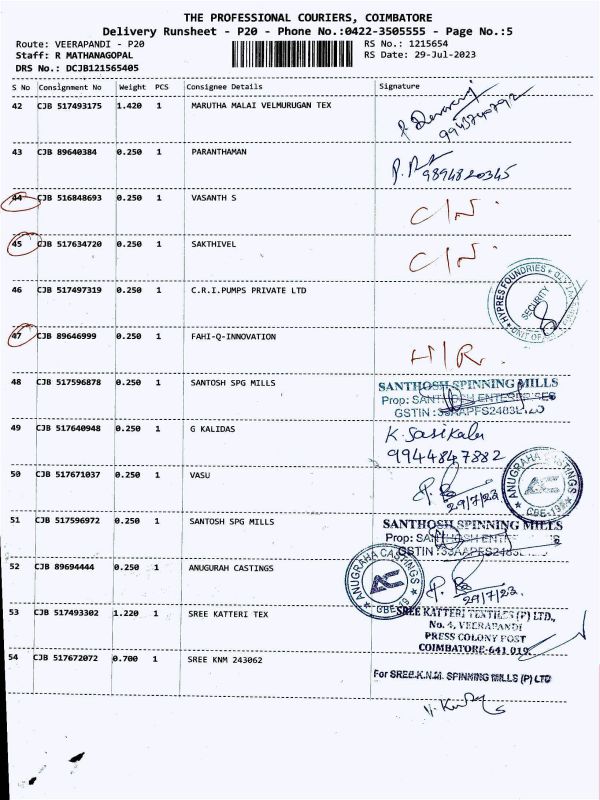 THE PROFESSIONAL COURIERS, COIMBATORE
Delivery Runsheet - P20 - Phone No.:0422-3505555 - Page No.:5
Route: VEERAPANDI - P20 RS No.: 1215654
Staff: R MATHANAGOPAL RS Date: 29-Jul-2023
DRS No.: DCJB121565405
S No Consignment No Weight PCS Consignee Details Signature
42 CJB 517493175 1.420 1 MARUTHA MALAI VELMURUGAN TEX
43 CJB 89640384 0.250 1 PARANTHAMAN
9894820345
44 CJB 516848693 0.250 1 VASANTH S
C/N.
45 CJB 517634720 0.250 1 SAKTHIVEL
C/N.
46 CJB 517497319 0.250 1 C.R.I.PUMPS PRIVATE LTD
HYPRES FOUNDRIES
SECURITY
47 CJB 89646999 0.250 1 FAHI-Q-INNOVATION
H/R.
48 CJB 517596878 0.250 1 SANTOSH SPG MILLS
SANTHOSH SPINNING MILLS
Prop: SANTHOSH ENTERPRISES
49 CJB 517640948 0.250 1 G KALIDAS
K. Sasikala
9944847882
50 CJB 517671037 0.250 1 VASU
29/7/23
ANUGRAHA CASTINGS
51 CJB 517596972 0.250 1 SANTOSH SPG MILLS
SANTHOSH SPINNING MILLS
52 CJB 89694444 0.250 1 ANUGURAH CASTINGS
ANUGRAHA CASTINGS
29/7/23.
53 CJB 517493302 1.220 1 SREE KATTERI TEX
SREE KATTERI TEXTILES (P) LTD.,
No. 4, VEERAPANDI
PRESS COLONY POST
COIMBATORE-641 019.
54 CJB 517672072 0.700 1 SREE KNM 243062
For SREE.K.N.M. SPINNING MILLS (P) LTD